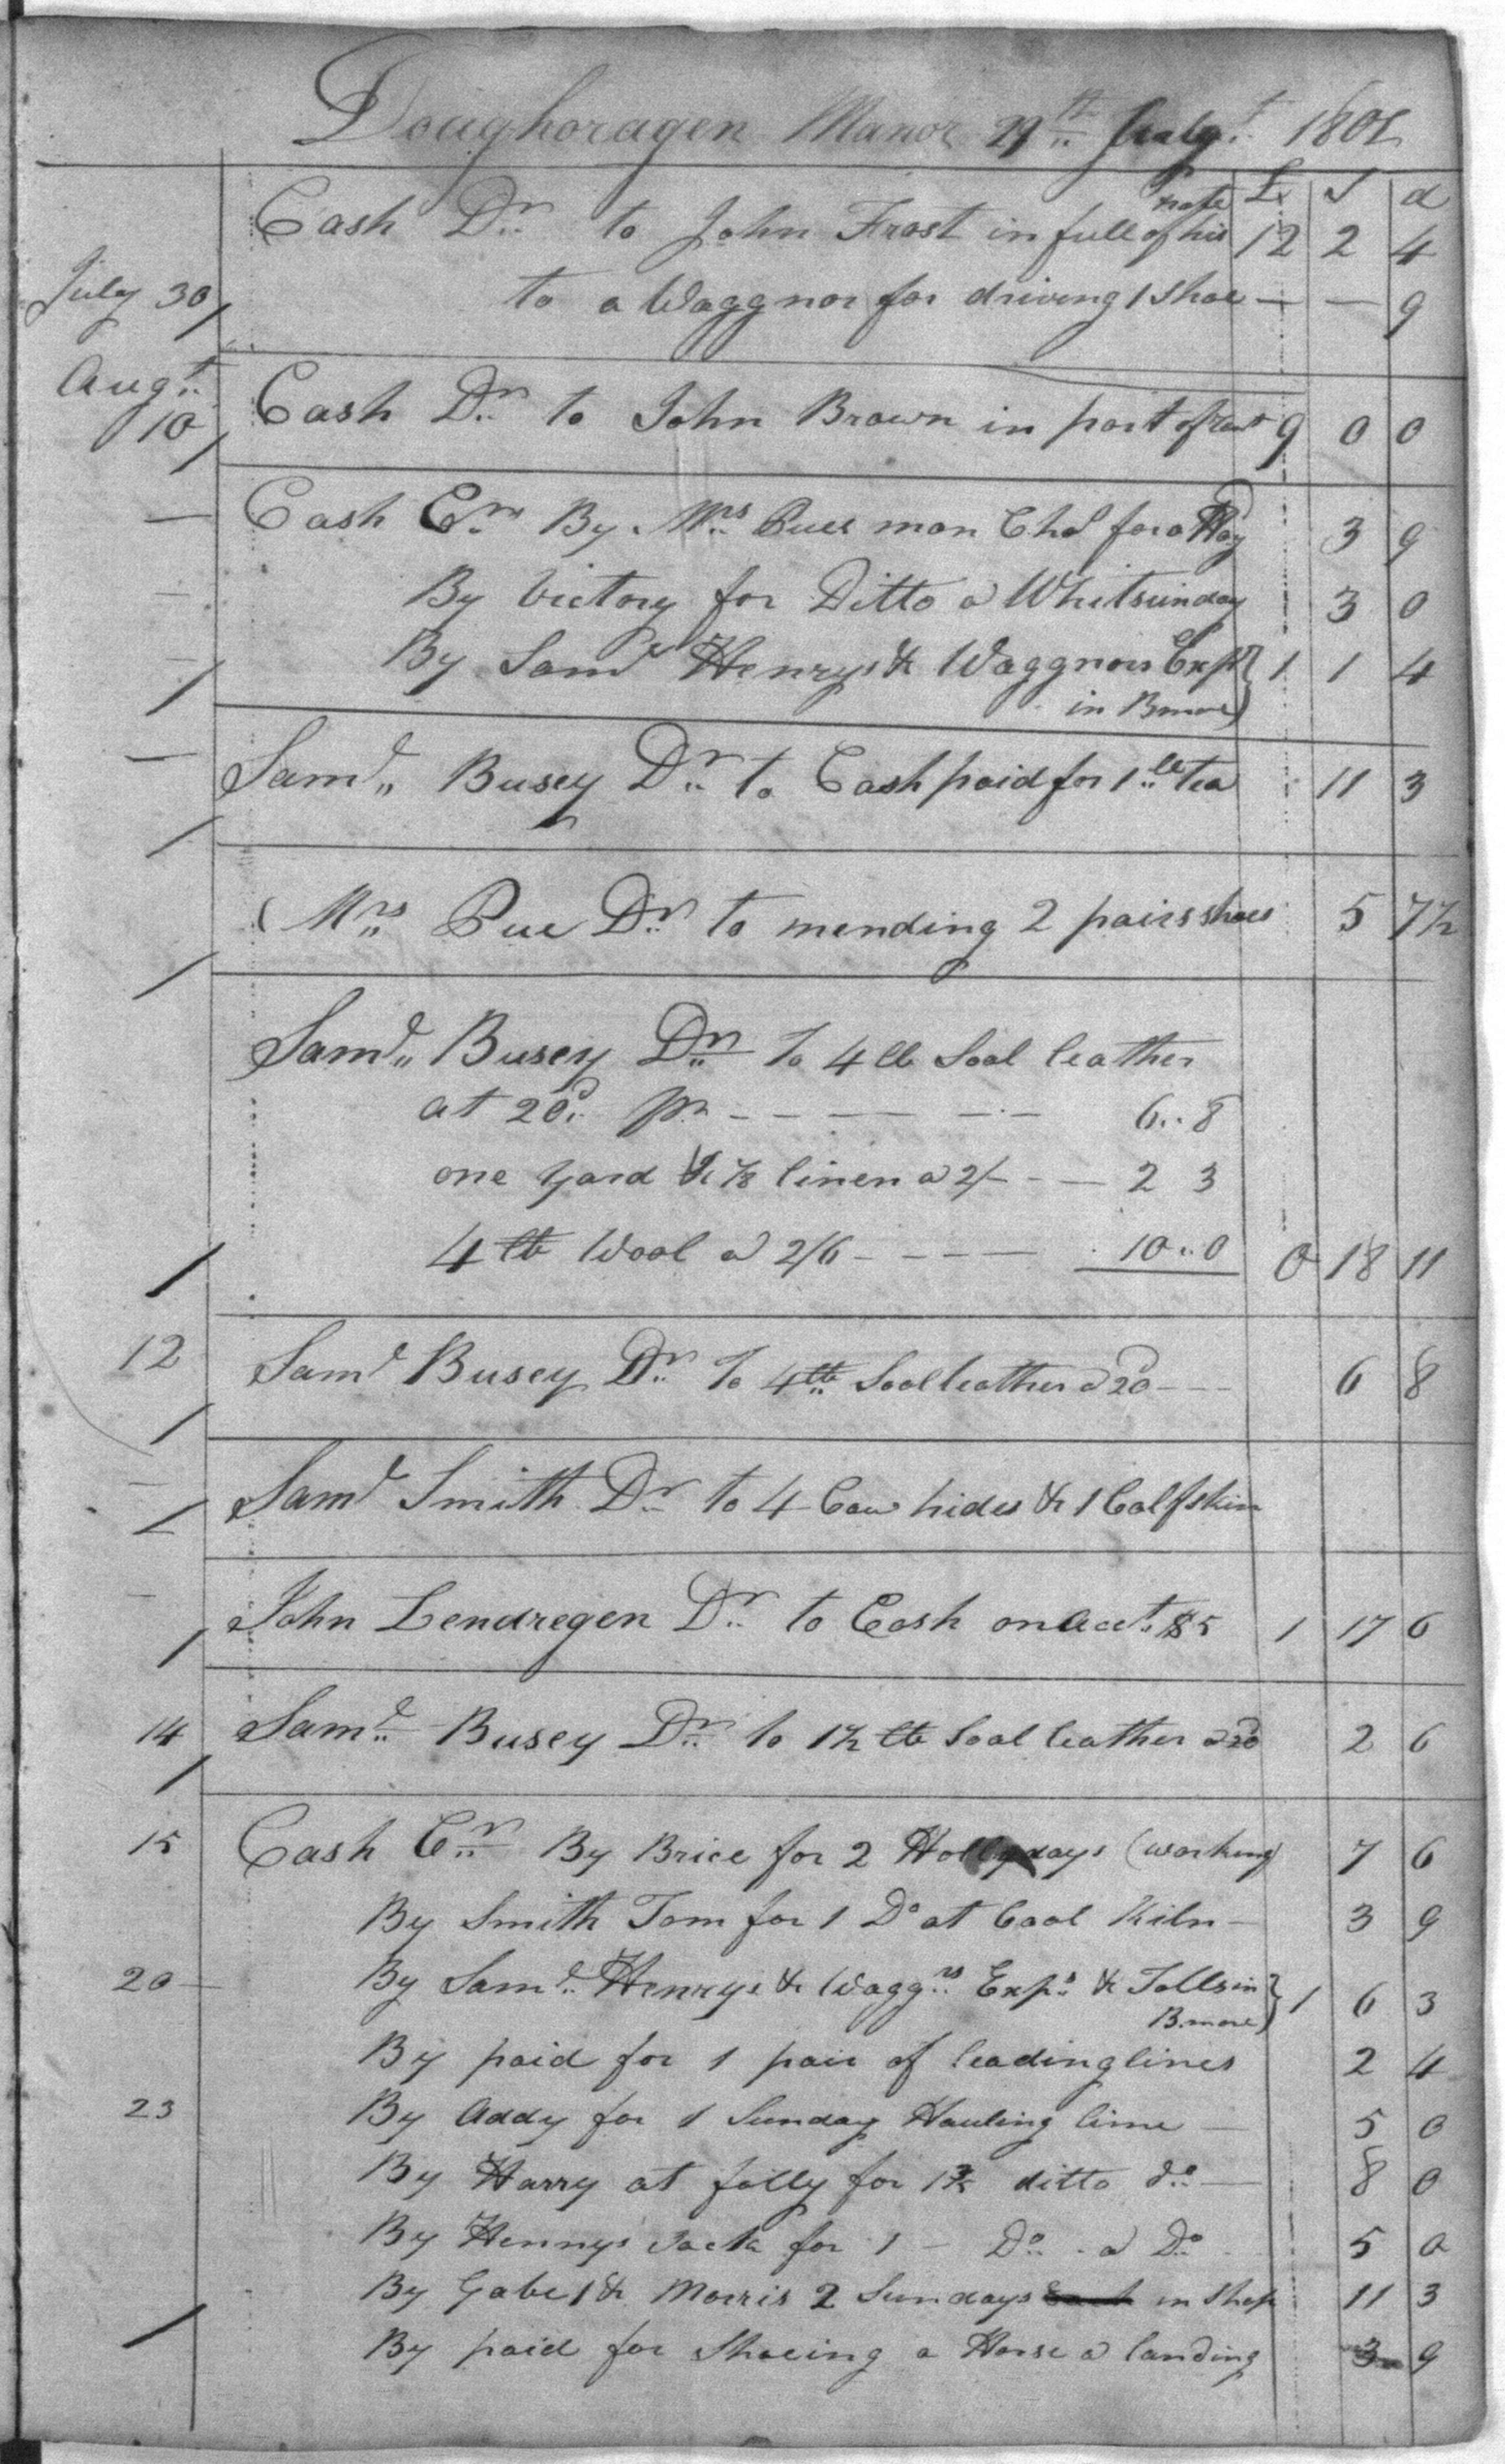 Doughoragen Manor 29th July 1801
£ S d
note
Cash Dr to John Frost in full of his 12 2 4
July 30 to a Waggnor for driving 1 Shoe — — 9
Augt
10 Cash Dr to John Brown in part of rent 9 0 0
— Cash Cr By Mrs Pues man Chs for a Hog 3 9
By Victory for Ditto a Whitsunday 3 0
By Saml Henrys & Waggnors Exps 1 1 4
in Bmore
— Saml Busey Dr to Cash paid for 1 lb tea 11 3
Mrs Pue Dr to mending 2 pairs shoes 5 7½
Saml Busey Dr To 4 lb Soal leather
at 20d pr - - - - - 6..8
one yard & ⅛ linen a 2/- - - 2 3
4 lb Wool a 2/6 - - - - 10..0 0 18 11
12 Saml Busey Dr To 4 lb Soal leather a 20d - - - 6 8
Saml Smith Dr to 4 Cow hides & 1 Calfskin
John Lendregen Dr to Cash on Acct $5 1 17 6
14 Saml Busey Dr to 1½ lb Soal leather a 20d 2 6
15 Cash Cr By Brice for 2 Hollydays (working) 7 6
By Smith Tom for 1 Do at Coal Kiln — 3 9
20 By Saml Henrys & Waggrs Exps & Tolls in 1 6 3
B.more
By paid for 1 pair of leading lines 2 4
23 By Addy for 1 Sunday Hauling lime — 5 0
By Harry at folly for 1⅗ ditto do — 8 0
By Hennys Jack for 1 - Do a Do 5 0
By Gabe 1 & Morris 2 Sundays in Shop 11 3
By paid for Shoeing a Horse a landing 3 9